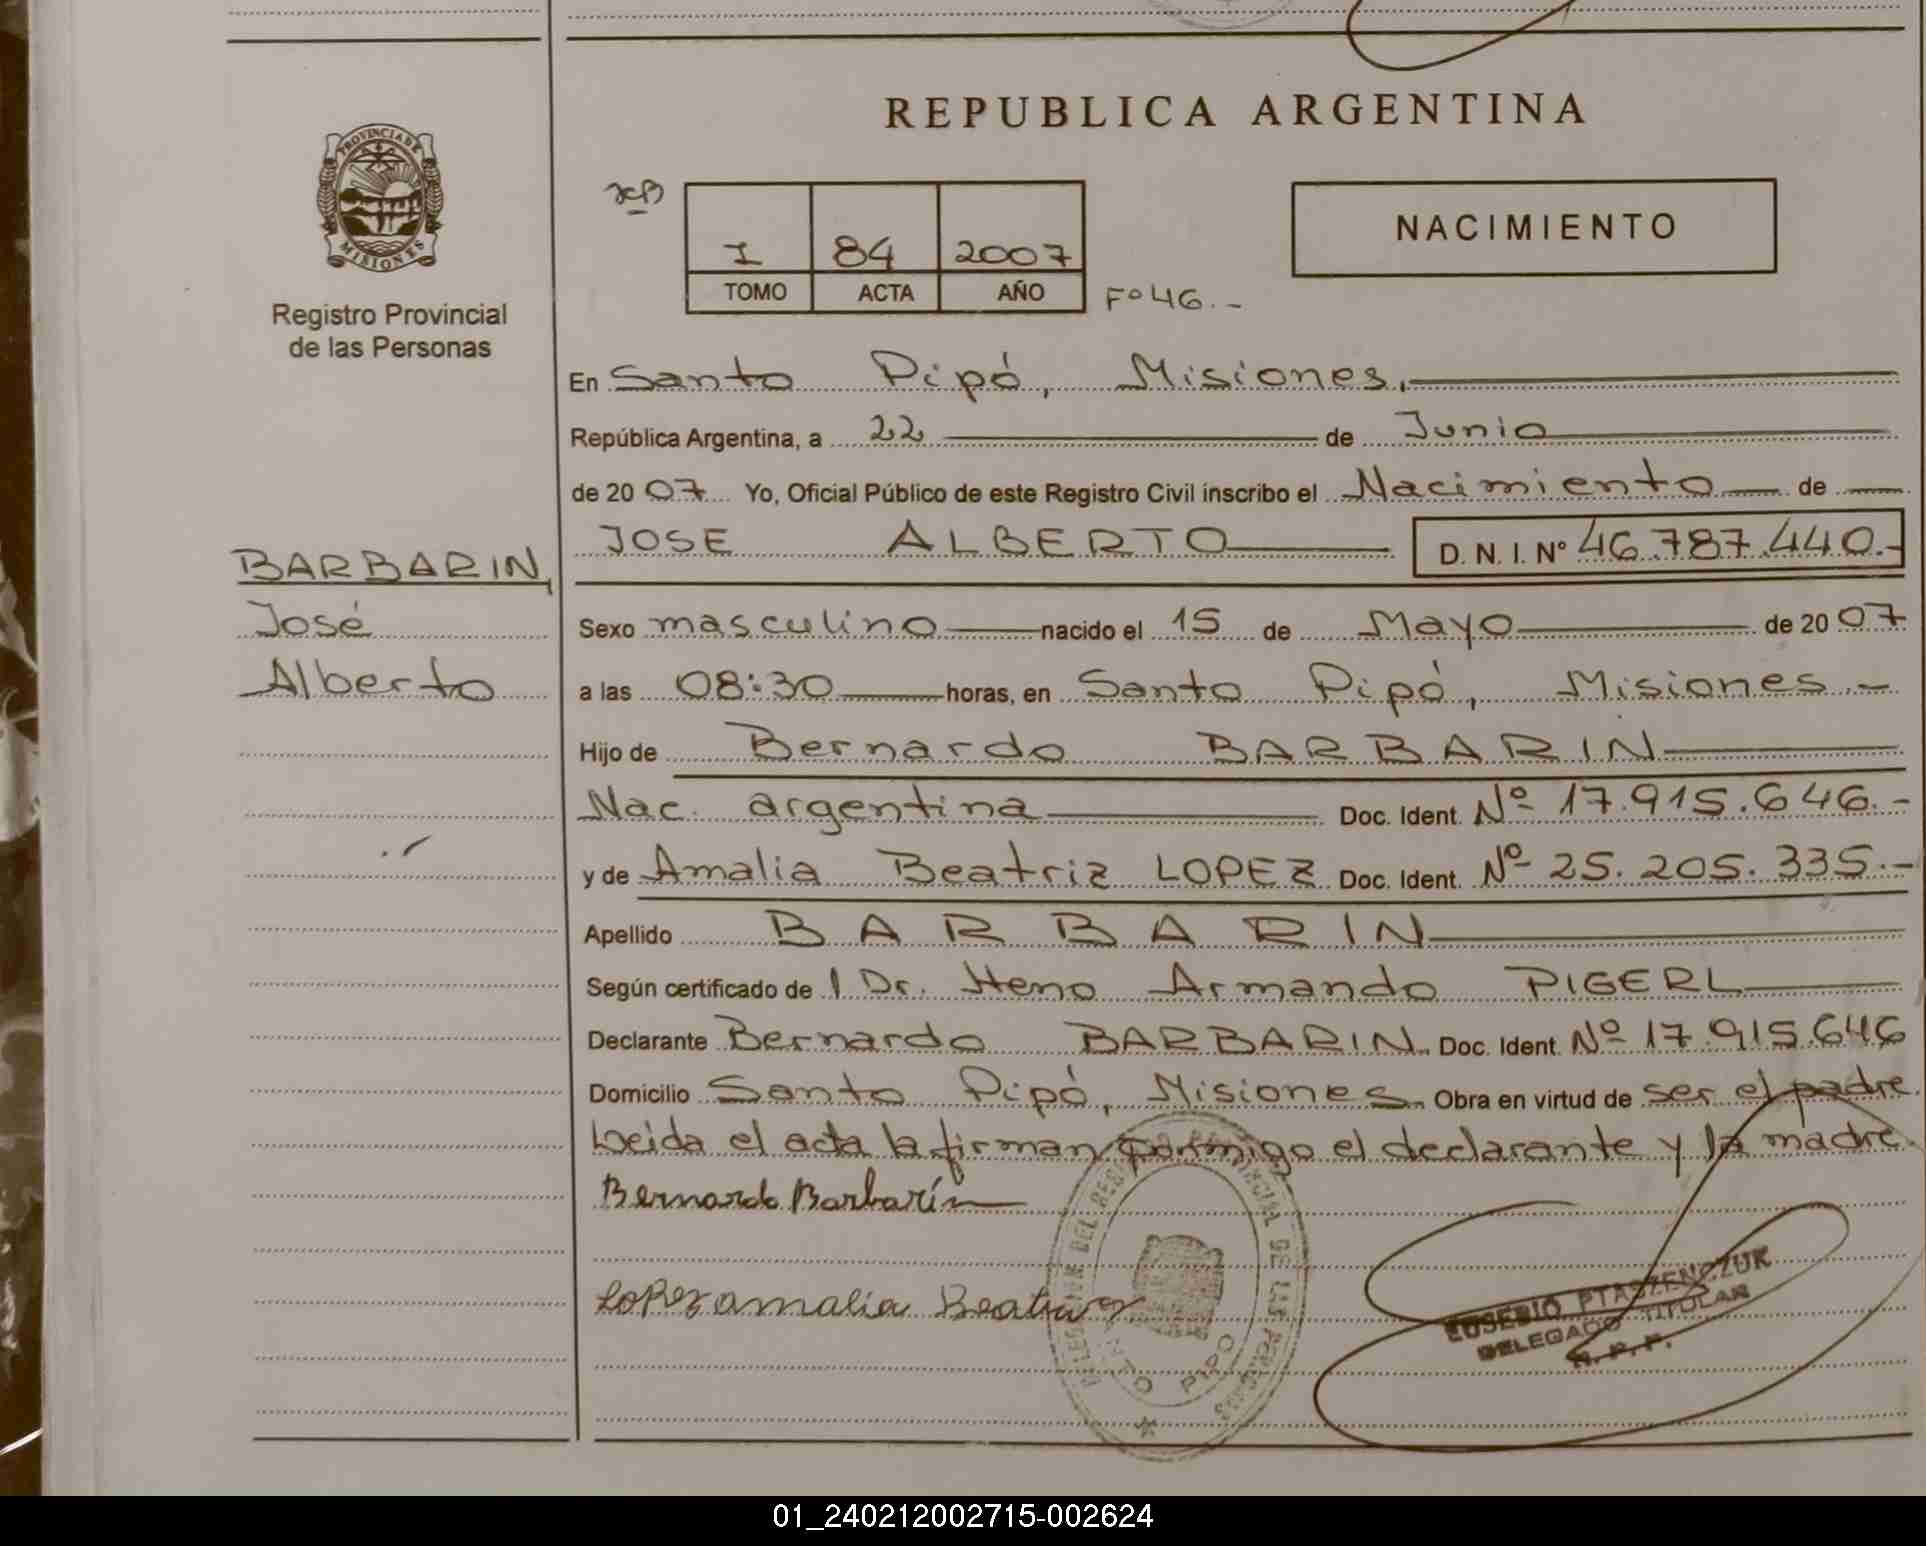 PROVINCIA DE
MISIONES
Registro Provincial
de las Personas
BARBARIN,
José
Alberto
REPUBLICA ARGENTINA
I 84 2007
TOMO ACTA AÑO
Fº 46.-
NACIMIENTO
En Santo Pipó, Misiones,
República Argentina, a 22 de Junio
de 2007 Yo, Oficial Público de este Registro Civil inscribo el Nacimiento de
JOSE ALBERTO D. N. I. Nº 46.787.440.-
Sexo masculino nacido el 15 de Mayo de 2007
a las 08:30 horas, en Santo Pipó, Misiones.-
Hijo de Bernardo BARBARIN
Nac. argentina Doc. Ident. Nº 17.915.646.-
y de Amalia Beatriz LOPEZ Doc. Ident. Nº 25.205.335.-
Apellido BARBARIN
Según certificado de l Dr. Heno Armando PIGERL
Declarante Bernardo BARBARIN. Doc. Ident. Nº 17.915.646
Domicilio Santo Pipó, Misiones. Obra en virtud de ser el padre.
Leida el acta la firman conmigo el declarante y la madre.
Bernardo Barbarín
Lopez amalia Beatriz
DELEGACION DEL REGISTRO PROVINCIAL DE LAS PERSONAS
SANTO PIPO
EUSEBIO PTASZENCZUK
DELEGADO TITULAR
R. P. P.
01_240212002715-002624